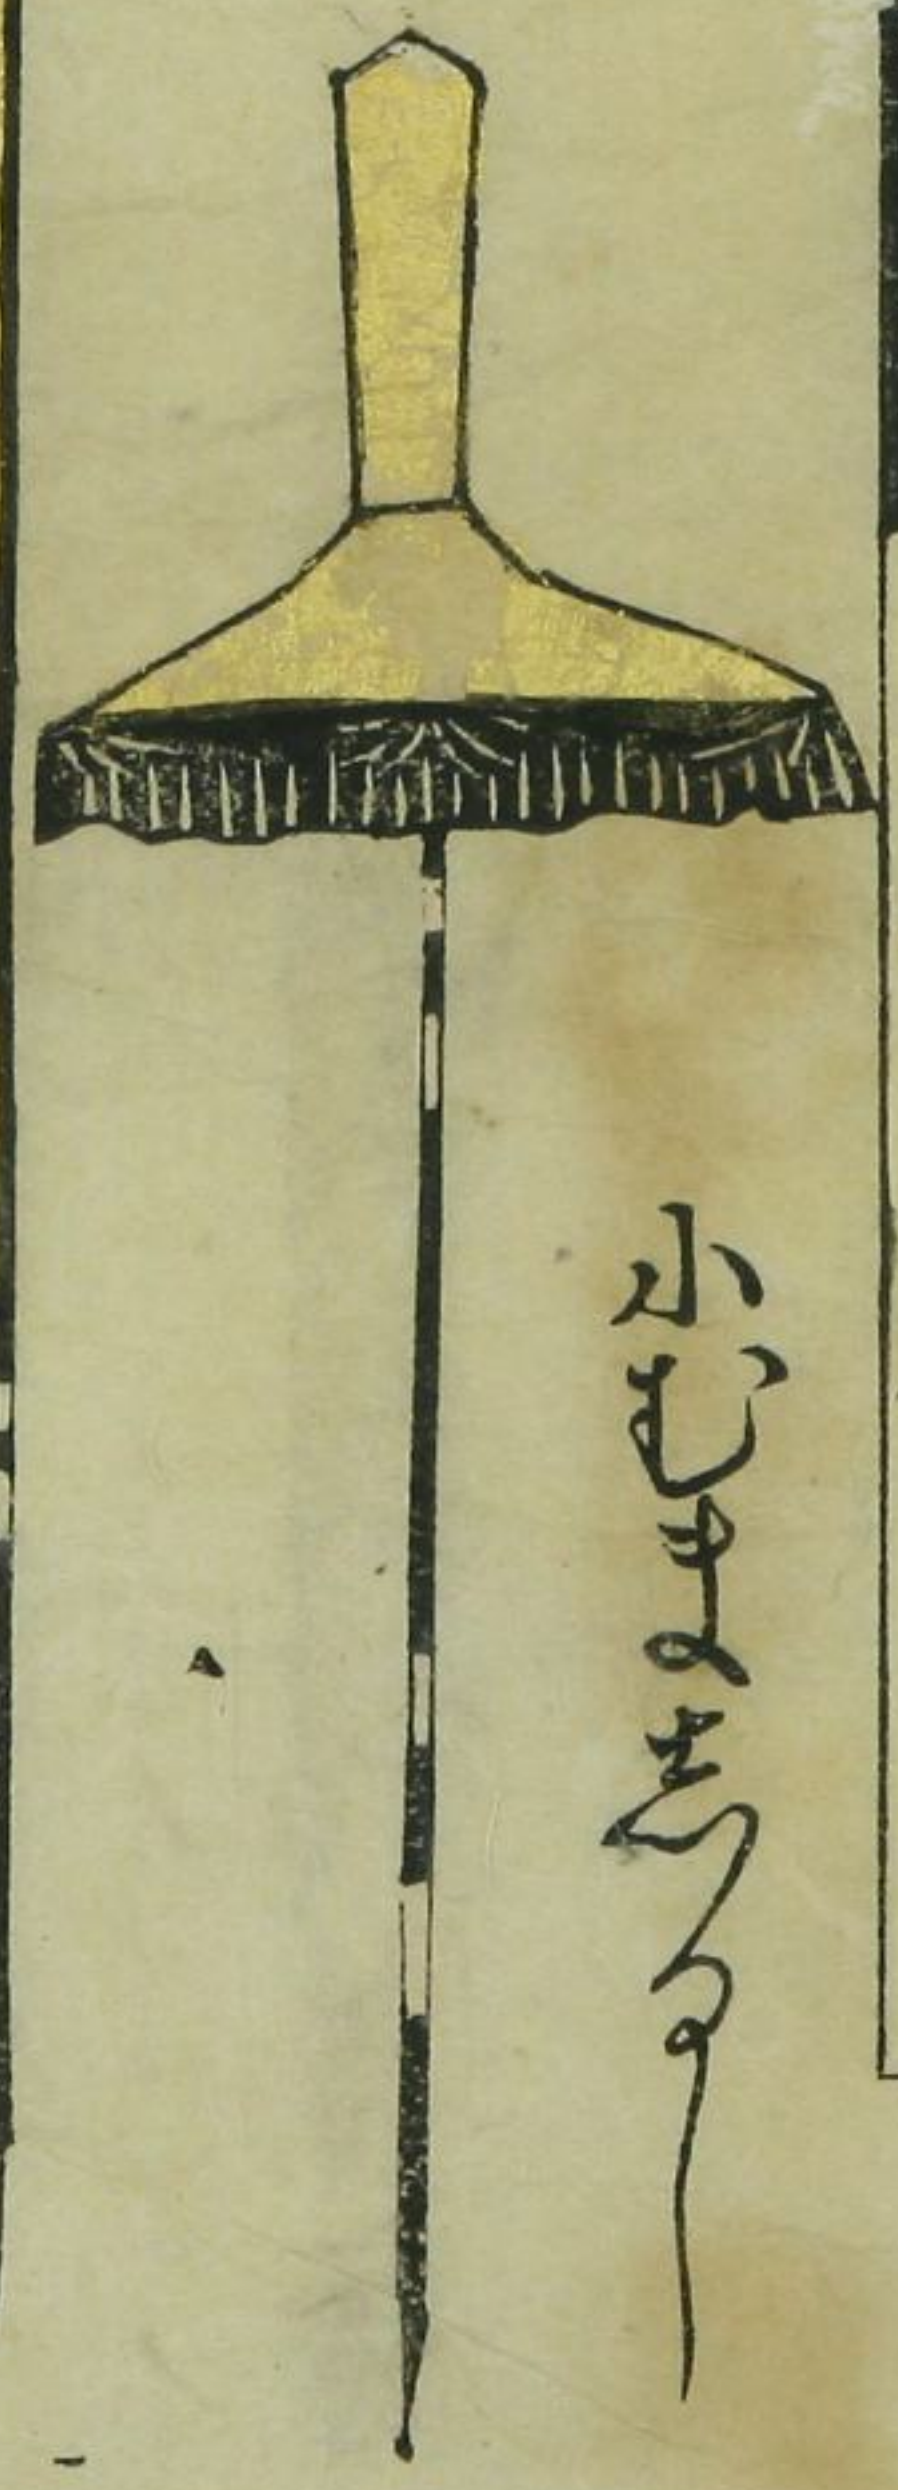 小むましるし